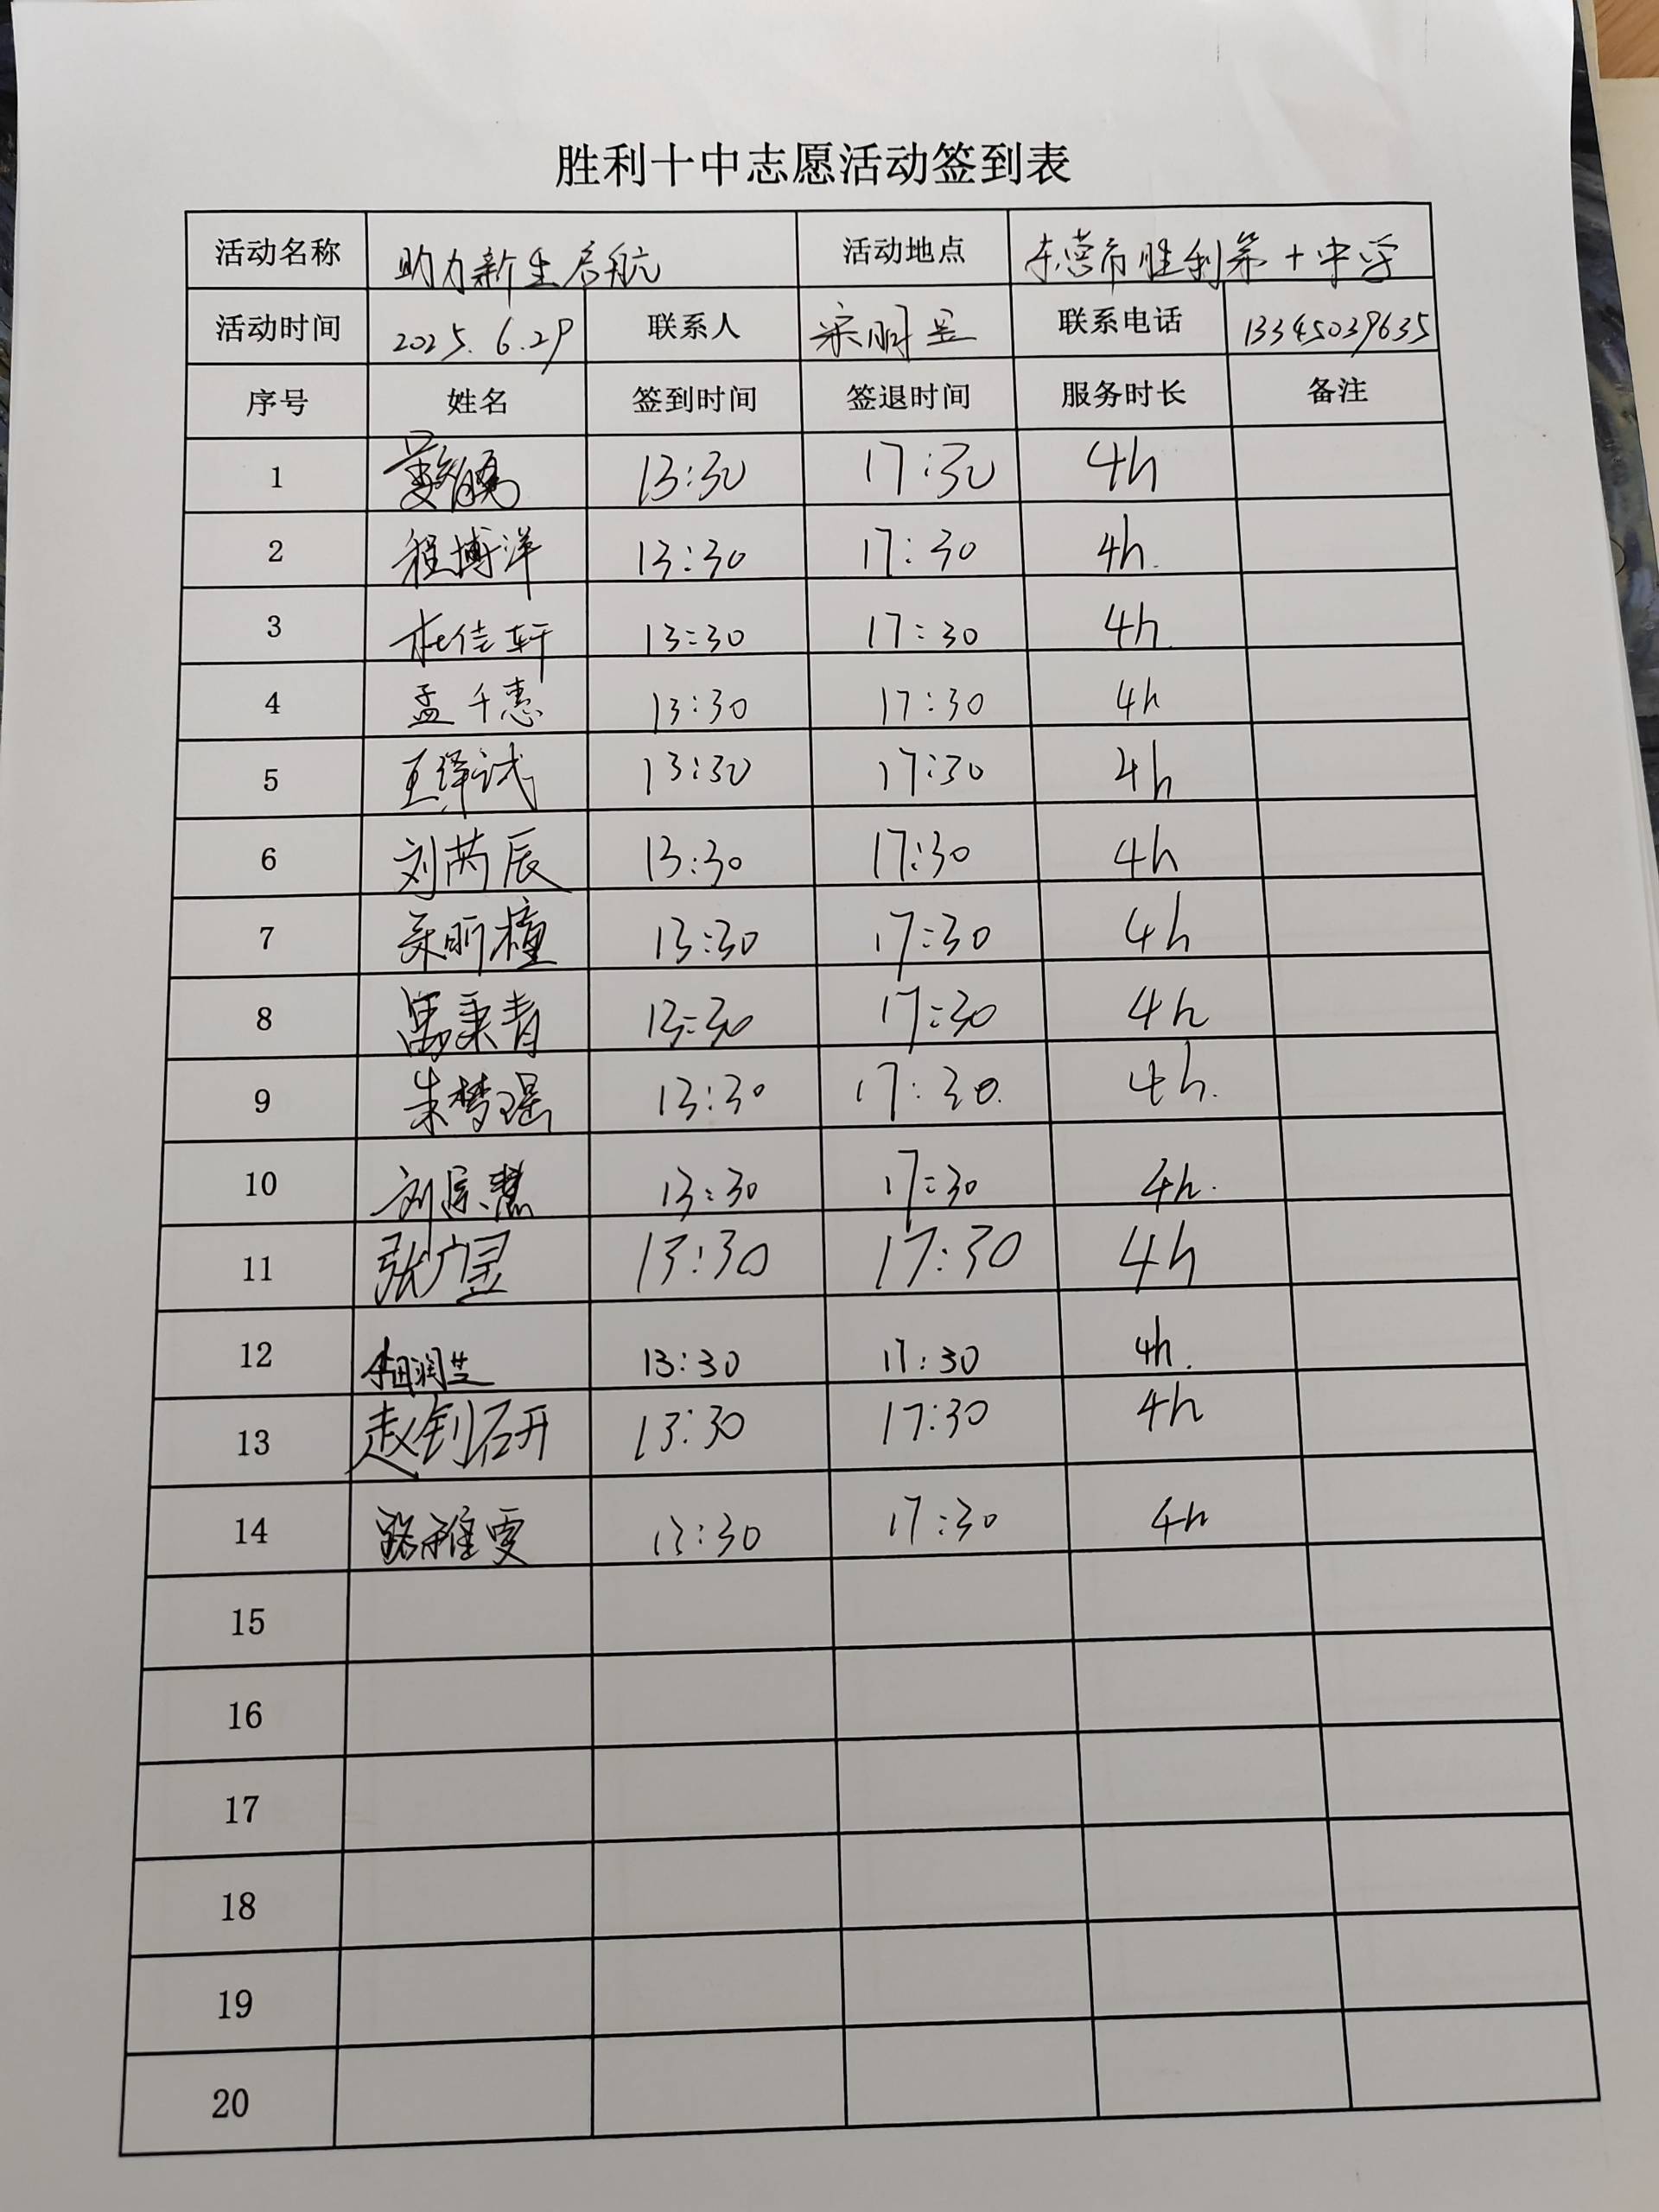 胜利十中志愿活动签到表
活动名称 助力新生启航 活动地点 东营市胜利第十中学
活动时间 2025.6.29 联系人 宋明昱 联系电话 13345039635
序号 姓名 签到时间 签退时间 服务时长 备注
1 13:30 17:30 4h
2 程博洋 13:30 17:30 4h.
3 杜佳轩 13:30 17:30 4h.
4 孟千惠 13:30 17:30 4h
5 王译试 13:30 17:30 4h
6 刘芮辰 13:30 17:30 4h
7 宋昕橦 13:30 17:30 4h
8 禹秉青 13:30 17:30 4h
9 朱梦瑶 13:30 17:30. 4h.
10 刘宗慧 13:30 17:30 4h.
11 张广昱 13:30 17:30 4h
12 润芝 13:30 17:30 4h.
13 赵钊研 13:30 17:30 4h
14 路雅雯 13:30 17:30 4h
15
16
17
18
19
20